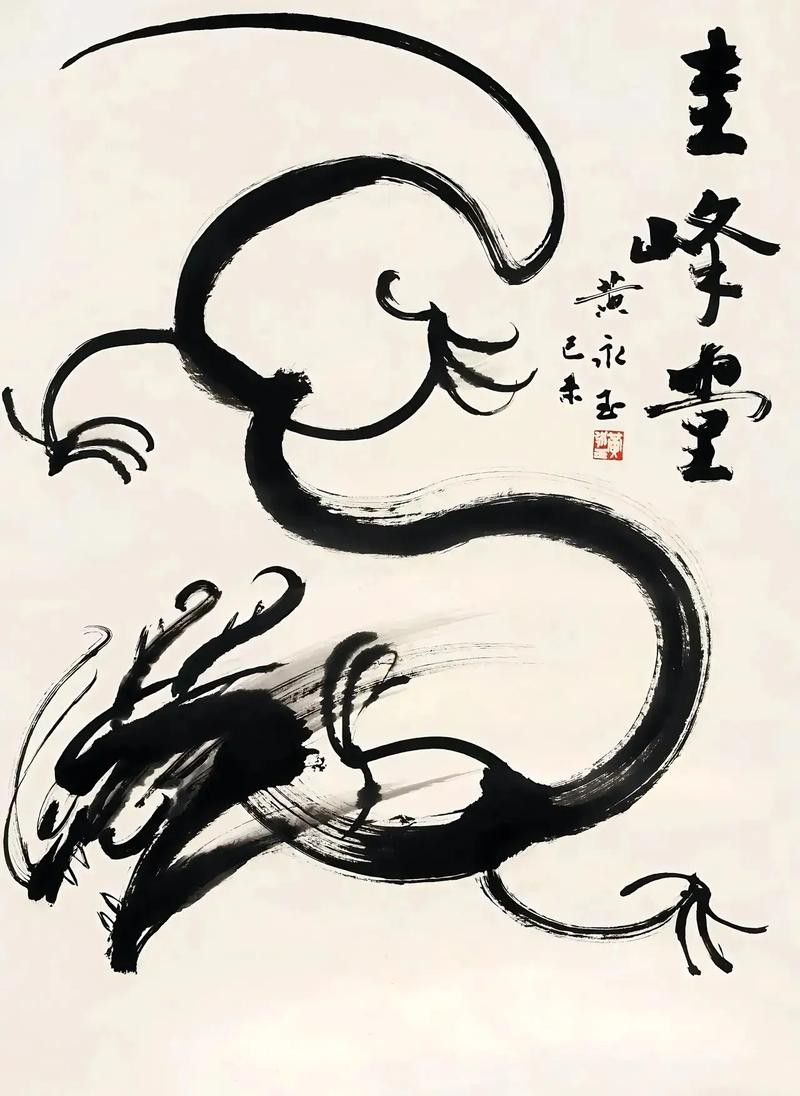 圭峰堂
黄永玉
己未